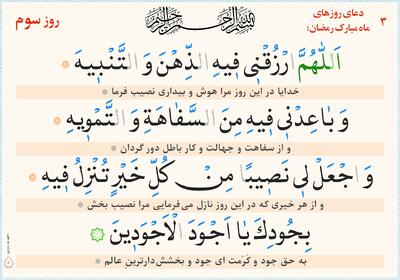 دعای روزهای
ماه مبارک رمضان:
۳
بسم الله الرحمن الرحیم
روز سوم
اَللّٰهُمَّ ارْزُقْنی فیهِ الذِّهْنَ وَ التَّنْبیهَ
خدایا در این روز مرا هوش و بیداری نصیب فرما
وَ باعِدْنی فیهِ مِنَ السَّفاهَةِ وَ التَّمْویهِ
و از سفاهت و جهالت و کار باطل دور گردان
وَ اجْعَلْ لی نَصیبًا مِنْ کُلِّ خَیْرٍ تُنْزِلُ فیهِ
و از هر خیری که در این روز نازل می‌فرمایی مرا نصیب بخش
بِجُودِكَ یا اَجْوَدَ الْاَجْوَدینَ
به حق جود و کرمت ای جود و بخشش‌دارترین عالم